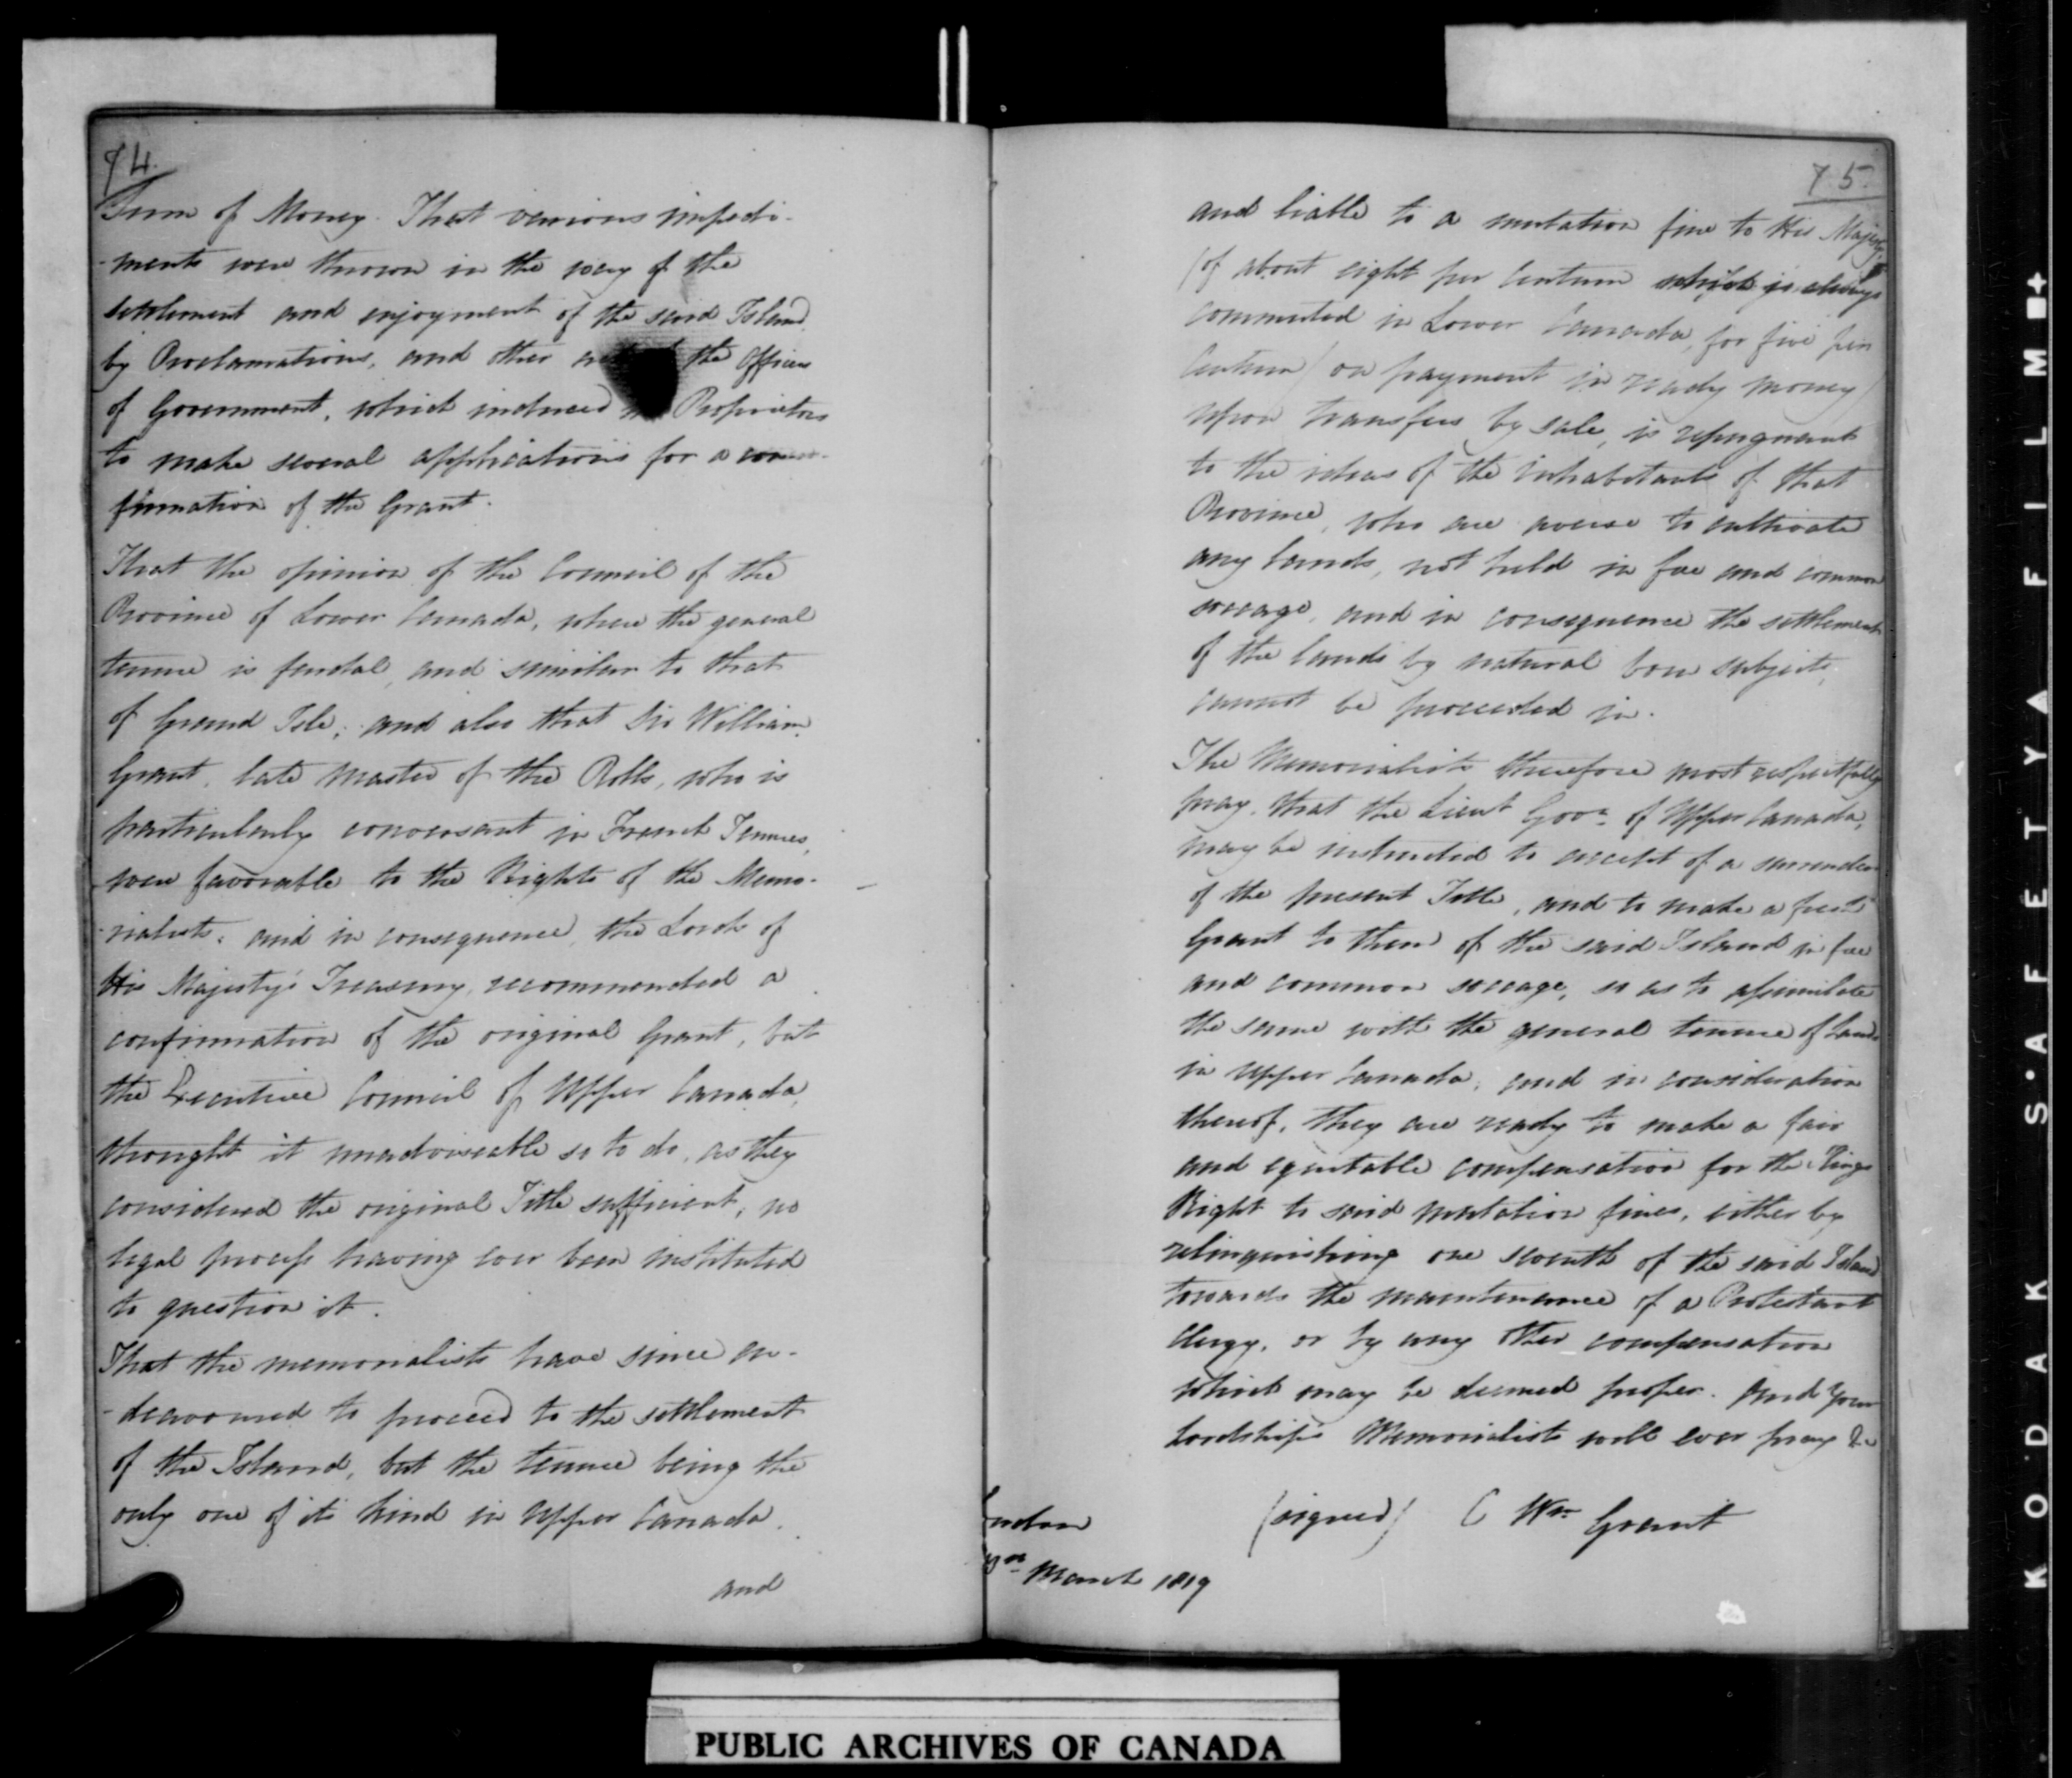 74.
Sum of Money. That various impedi-
-ments were thrown in the way of the
settlement and enjoyment of the said Island,
by Proclamations, and other the Officers
of Government, which induced Proprietors
to make several applications for a con-
firmation of the Grant.
That the opinion of the Council of the
Province of Lower Canada, where the general
tenure is feudal, and similar to that
of Grand Isle; and also that Sir William
Grant, late Master of the Rolls, who is
particularly conversant in French Tenures,
were favorable to the Rights of the Memo-
-rialists; and in consequence, the Lords of
His Majesty's Treasury, recommended a
confirmation of the original Grant, but
the Executive Council of Upper Canada,
thought it unadviseable so to do, as they
considered the original Title sufficient, no
legal process having ever been instituted
to question it.
That the memorialists have since en-
-deavoured to proceed to the settlement
of the Island, but the tenure being the
only one of its kind in Upper Canada,
and
75.
and liable to a mutation fine to His Majesty
(of about eight per Centum which is always
commuted in Lower Canada, for five per
Centum / on payment in ready money)
upon transfers by sale, is repugnant
to the ideas of the inhabitants of that
Province, who are averse to cultivate
any Lands, not held in free and common
soccage, and in consequence the settlement
of the Lands by natural born subjects,
cannot be proceeded in.
The Memorialists therefore most respectfully
pray, that the Lieut Govr. of Upper Canada,
may be instructed to accept of a surrender
of the present Title, and to make a fresh
Grant to them of the said Island in free
and common soccage, so as to assimilate
the same with the general tenure of Lands
in Upper Canada, and in consideration
thereof, they are ready to make a fair
and equitable compensation for the Kings
Right to said mutation fines, either by
relinquishing one seventh of the said Island
towards the maintenance of a Protestant
Clergy, or by any other compensation
which may be deemed proper. And Your
Lordships Memorialists will ever pray &c
(signed) C Wm. Grant
March 1819
PUBLIC ARCHIVES OF CANADA
KODAK S·A·F·E·T·Y FILM